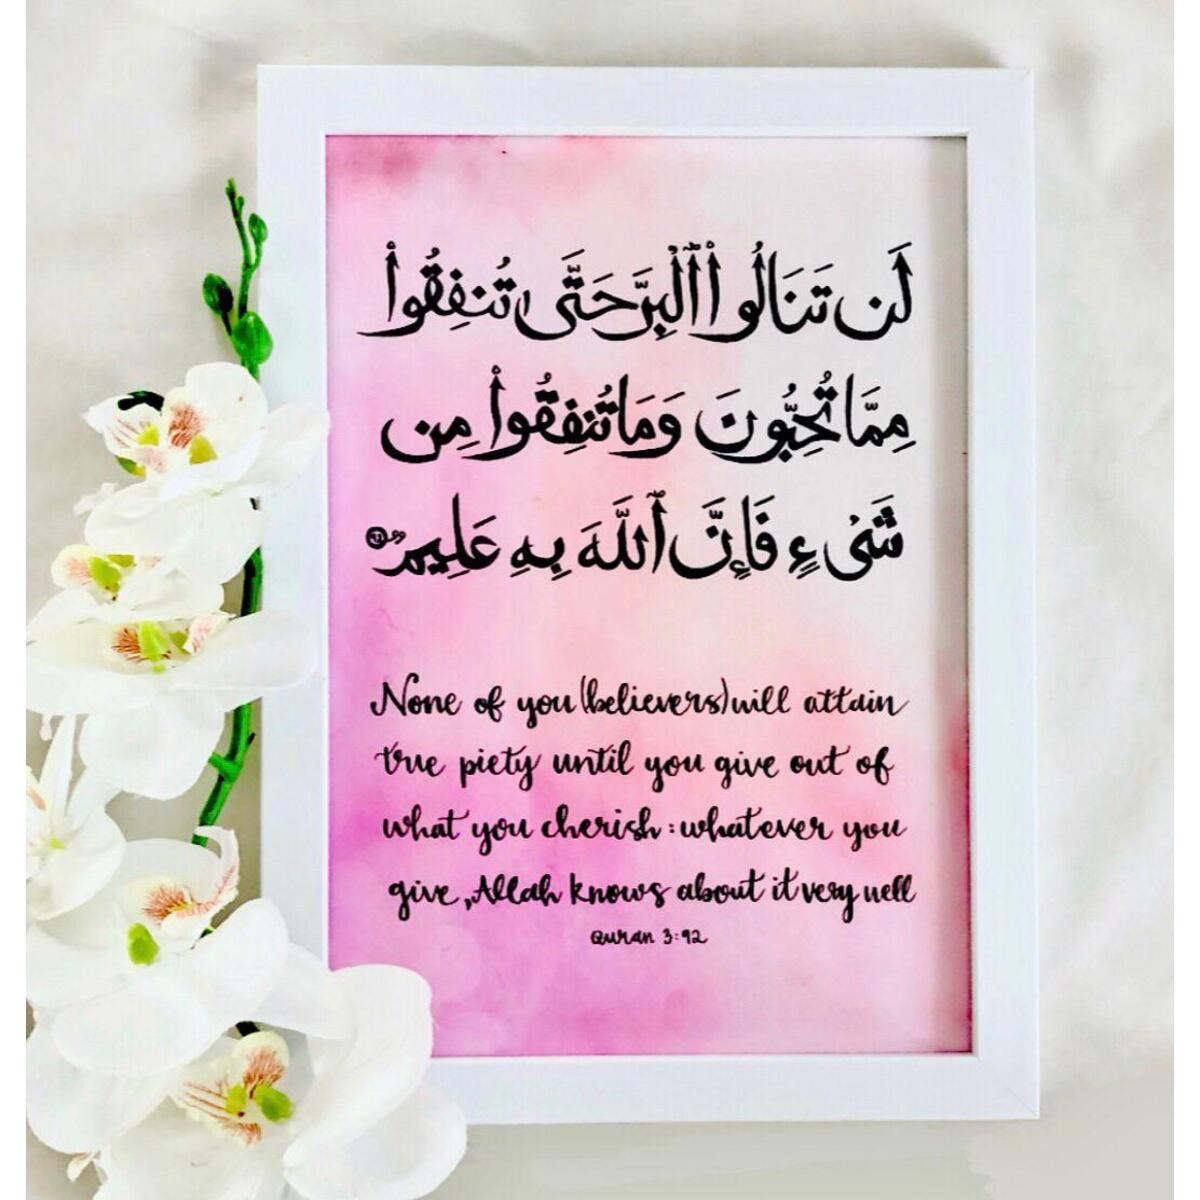 لَن تَنَالُوا۟ ٱلْبِرَّ حَتَّىٰ تُنفِقُوا۟
مِمَّا تُحِبُّونَ وَمَا تُنفِقُوا۟ مِن
شَىْءٍ فَإِنَّ ٱللَّهَ بِهِۦ عَلِيمٌ ٩٢
None of you (believers) will attain
true piety until you give out of
what you cherish : whatever you
give, Allah knows about it very well
Quran 3:92